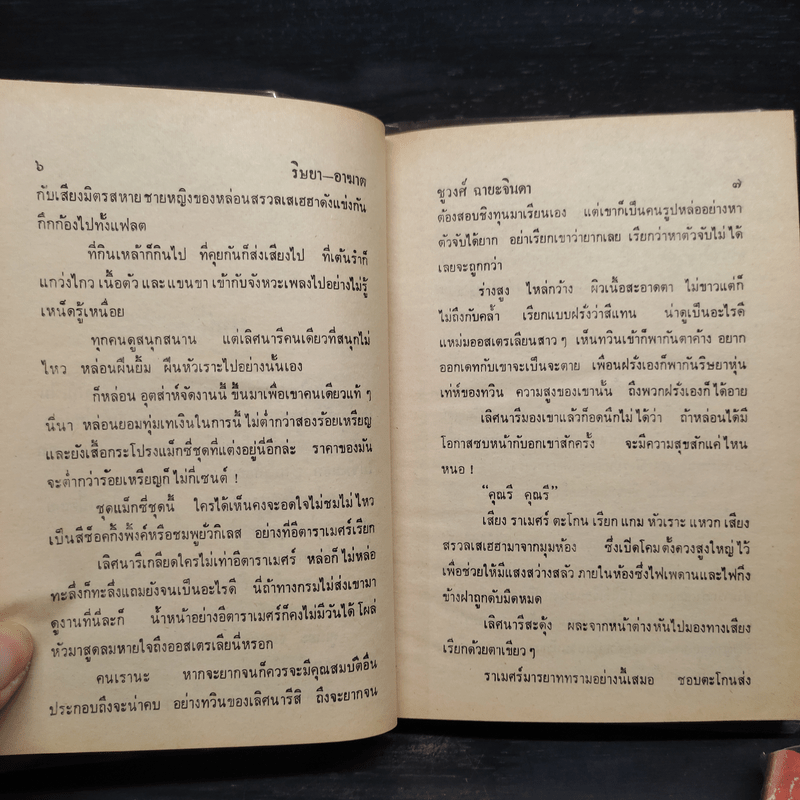 ๖
ริษยา—อาฆาต
กับเสียงมิตรสหายชายหญิงของหล่อนสรวลเสเฮฮาดังแข่งกัน
กึกก้องไปทั้งแฟลต
ที่กินเหล้าก็กินไป ที่คุยกันก็ส่งเสียงไป ที่เต้นรำก็
แกว่งไกว เนื้อตัว และ แขนขา เข้ากับจังหวะเพลงไปอย่างไม่รู้
เหน็ดรู้เหนื่อย
ทุกคนดูสนุกสนาน แต่เลิศนารีคนเดียวที่สนุกไม่
ไหว หล่อนฝืนยิ้ม ฝืนหัวเราะไปอย่างนั้นเอง
ก็หล่อน อุตส่าห์จัดงานนี้ ขึ้นมาเพื่อเขาคนเดียวแท้ ๆ
นี่นา หล่อนยอมทุ่มเทเงินในการนี้ ไม่ต่ำกว่าสองร้อยเหรียญ
และยังเสื้อกระโปรงแม็กซี่ชุดที่แต่งอยู่นี่อีกล่ะ ราคาของมัน
จะต่ำกว่าร้อยเหรียญก็ ไม่กี่เซนต์ !
ชุดแม็กซี่ชุดนี้ ใครได้เห็นคงจะอดใจไม่ชมไม่ไหว
เป็นสีช็อคกิ้งพิ้งค์หรือชมพูยั่วกิเลส อย่างที่อีตาราเมศร์เรียก
เลิศนารีเกลียดใครไม่เท่าอีตาราเมศร์ หล่อก็ ไม่หล่อ
ทะลึ่งก็ทะลึ่งแถมยังจนเป็นอะไรดี นี่ถ้าทางกรมไม่ส่งเขามา
ดูงานที่นี่ละก็ น้ำหน้าอย่างอีตาราเมศร์ก็คงไม่มีวันได้ โผล่
หัวมาสูดลมหายใจถึงออสเตรเลียนี่หรอก
คนเรานะ หากจะยากจนก็ควรจะมีคุณสมบัติอื่น
ประกอบถึงจะน่าคบ อย่างทวินของเลิศนารีสิ ถึงจะยากจน
ชูวงศ์ ฉายะจินดา
๗
ต้องสอบชิงทุนมาเรียนเอง แต่เขาก็เป็นคนรูปหล่ออย่างหา
ตัวจับได้ยาก อย่าเรียกเขาว่ายากเลย เรียกว่าหาตัวจับไม่ ได้
เลยจะถูกกว่า
ร่างสูง ไหล่กว้าง ผิวเนื้อสะอาดตา ไม่ขาวแต่ก็
ไม่ถึงกับคล้ำ เรียกแบบฝรั่งว่าสีแทน น่าดูเป็นอะไรดี
แหม่มออสเตรเลียนสาว ๆ เห็นทวินเข้าก็พากันตาค้าง อยาก
ออกเดทกับเขาจะเป็นจะตาย เพื่อนฝรั่งเองก็พากันริษยาหุ่น
เท่ห์ของทวิน ความสูงของเขานั้น ถึงพวกฝรั่งเองก็ ได้อาย
เลิศนารีมองเขาแล้วก็อดนึกไม่ ได้ว่า ถ้าหล่อนได้มี
โอกาสซบหน้ากับอกเขาสักครั้ง จะมีความสุขสักแค่ไหน
หนอ !
“คุณรี คุณรี”
เสียง ราเมศร์ ตะโกน เรียก แกม หัวเราะ แหวก เสียง
สรวลเสเฮฮามาจากมุมห้อง ซึ่งเปิดโคมตั้งดวงสูงใหญ่ ไว้
เพื่อช่วยให้มีแสงสว่างสลัว ภายในห้องซึ่งไฟเพดานและไฟกิ่ง
ข้างฝาถูกดับมืดหมด
เลิศนารีสะดุ้ง ผละจากหน้าต่างหันไปมองทางเสียง
เรียกด้วยตาเขียว ๆ
ราเมศร์มารยาททรามอย่างนี้เสมอ ชอบตะโกนส่ง